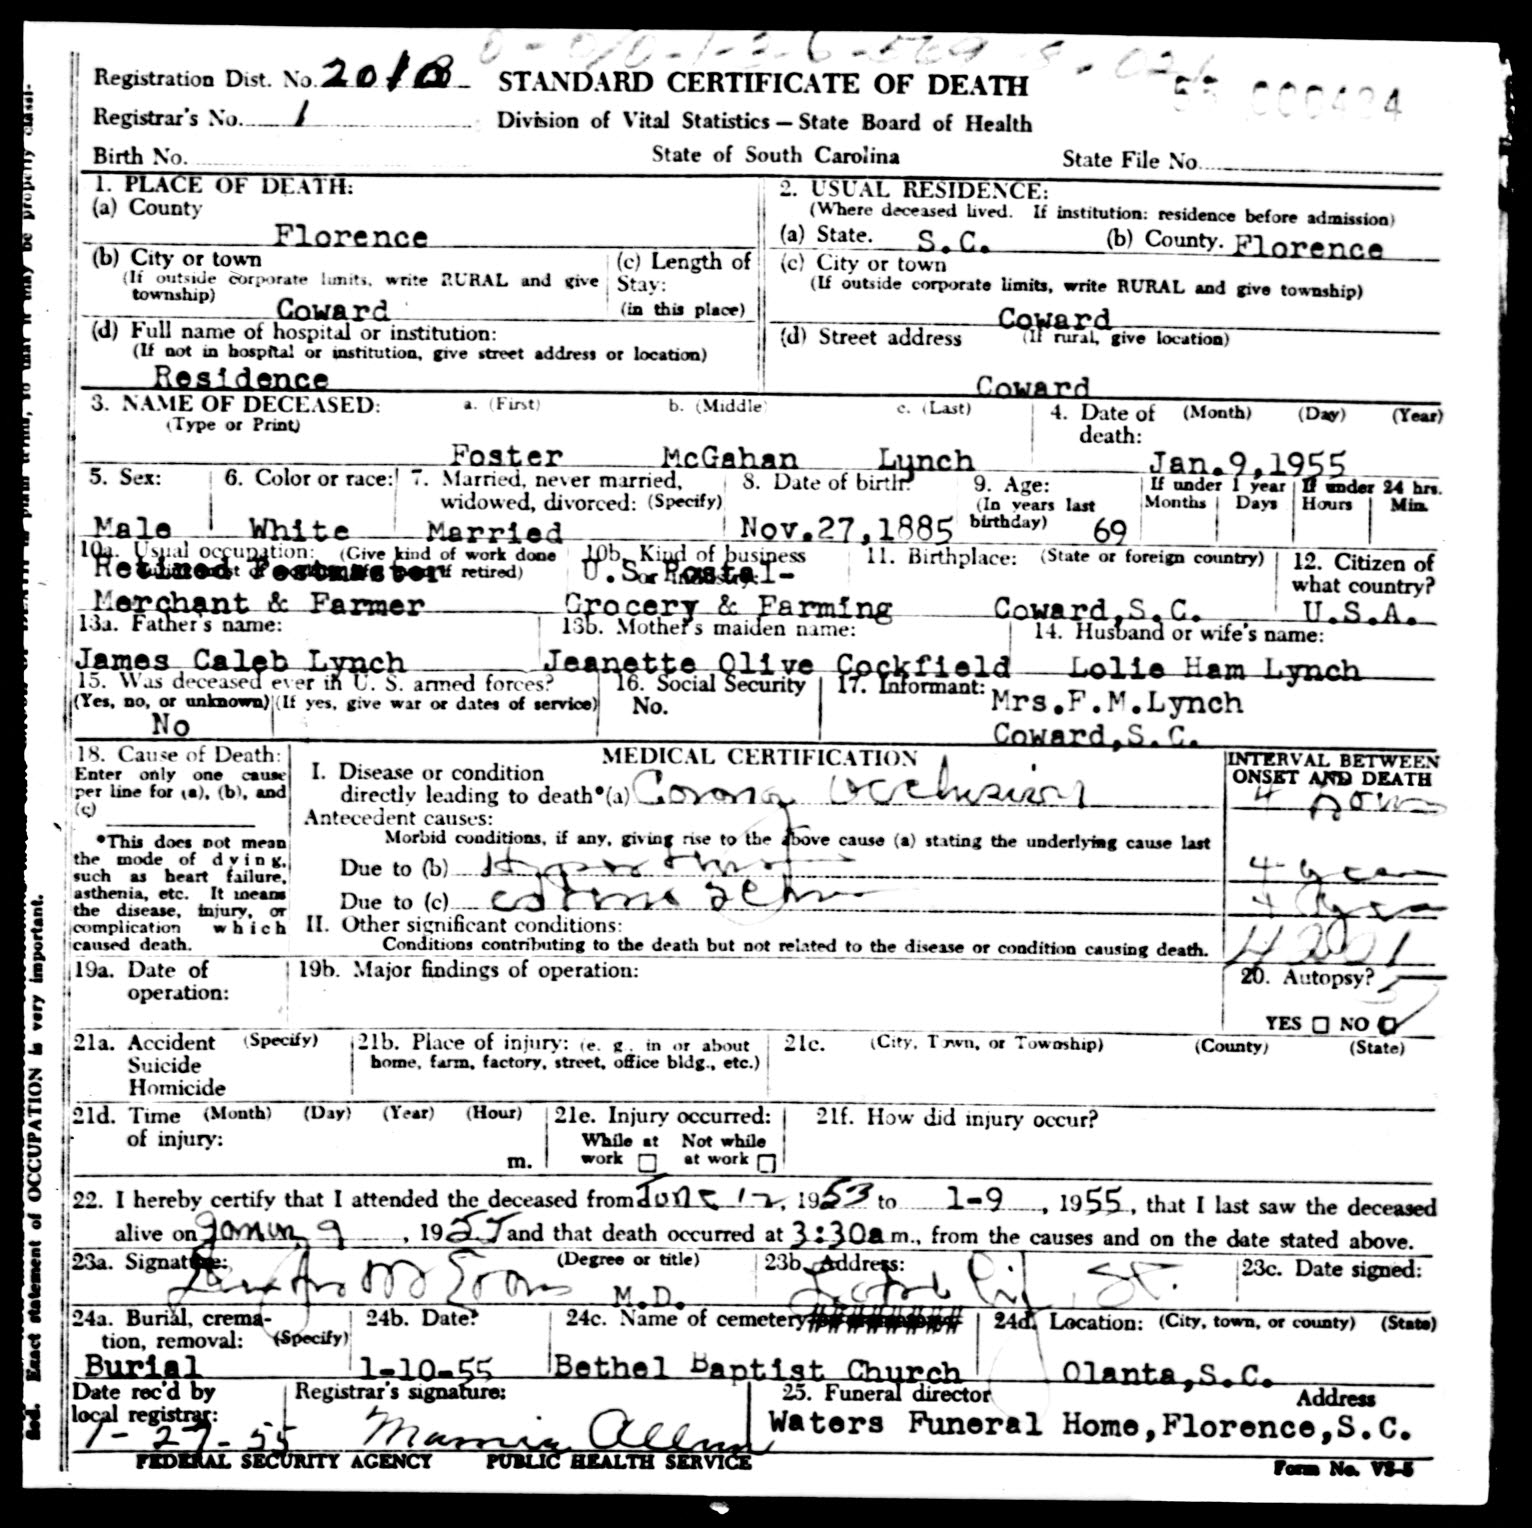 Registration Dist. No. 2018 STANDARD CERTIFICATE OF DEATH 55 000484
Registrar's No. 1 Division of Vital Statistics — State Board of Health
Birth No. State of South Carolina State File No.
1. PLACE OF DEATH:
(a) County
Florence
(b) City or town
(If outside corporate limits, write RURAL and give township)
Coward
(c) Length of Stay:
(in this place)
(d) Full name of hospital or institution:
(If not in hospital or institution, give street address or location)
Residence
2. USUAL RESIDENCE:
(Where deceased lived. If institution: residence before admission)
(a) State. S.C. (b) County. Florence
(c) City or town
(If outside corporate limits, write RURAL and give township)
Coward
(d) Street address (If rural, give location)
Coward
3. NAME OF DECEASED: a. (First) b. (Middle) c. (Last)
(Type or Print)
Foster McGahan Lynch
4. Date of death: (Month) (Day) (Year)
Jan.9,1955
5. Sex:
Male
6. Color or race:
White
7. Married, never married, widowed, divorced: (Specify)
Married
8. Date of birth:
Nov.27,1885
9. Age:
(In years last birthday) 69
If under 1 year
Months Days
If under 24 hrs.
Hours Min.
10a. Usual occupation: (Give kind of work done if retired)
Retired Postmaster
Merchant & Farmer
10b. Kind of business or industry:
U.S. Postal-
Grocery & Farming
11. Birthplace: (State or foreign country)
Coward,S.C.
12. Citizen of what country?
U.S.A.
13a. Father's name:
James Caleb Lynch
13b. Mother's maiden name:
Jeanette Olive Cockfield
14. Husband or wife's name:
Lolie Ham Lynch
15. Was deceased ever in U. S. armed forces?
(Yes, no, or unknown) (If yes, give war or dates of service)
No
16. Social Security No.
17. Informant: Mrs.F.M.Lynch
Coward,S.C.
18. Cause of Death:
Enter only one cause per line for (a), (b), and (c)
*This does not mean the mode of dying, such as heart failure, asthenia, etc. It means the disease, injury, or complication which caused death.
MEDICAL CERTIFICATION
I. Disease or condition
directly leading to death*(a) Coronary occlusion
Antecedent causes:
Morbid conditions, if any, giving rise to the above cause (a) stating the underlying cause last
Due to (b)
Due to (c)
II. Other significant conditions:
Conditions contributing to the death but not related to the disease or condition causing death.
INTERVAL BETWEEN ONSET AND DEATH
4
4
4
4201
19a. Date of operation:
19b. Major findings of operation:
20. Autopsy?
YES NO
21a. Accident (Specify)
Suicide
Homicide
21b. Place of injury: (e. g., in or about home, farm, factory, street, office bldg., etc.)
21c. (City, Town, or Township) (County) (State)
21d. Time (Month) (Day) (Year) (Hour)
of injury: m.
21e. Injury occurred:
While at work Not while at work
21f. How did injury occur?
22. I hereby certify that I attended the deceased from June 12, 1953 to 1-9, 1955, that I last saw the deceased
alive on January 9, 1955 and that death occurred at 3:30a m., from the causes and on the date stated above.
23a. Signature: (Degree or title)
M.D.
23b. Address:
23c. Date signed:
24a. Burial, cremation, removal: (Specify)
Burial
24b. Date?
1-10-55
24c. Name of cemetery
Bethel Baptist Church
24d. Location: (City, town, or county) (State)
Olanta,S.C.
Date rec'd by local registrar:
1-27-55
Registrar's signature:
Mamie Allen
25. Funeral director Address
Waters Funeral Home,Florence,S.C.
FEDERAL SECURITY AGENCY PUBLIC HEALTH SERVICE
Form No. VS-5
fied. Exact statement of OCCUPATION is very important.